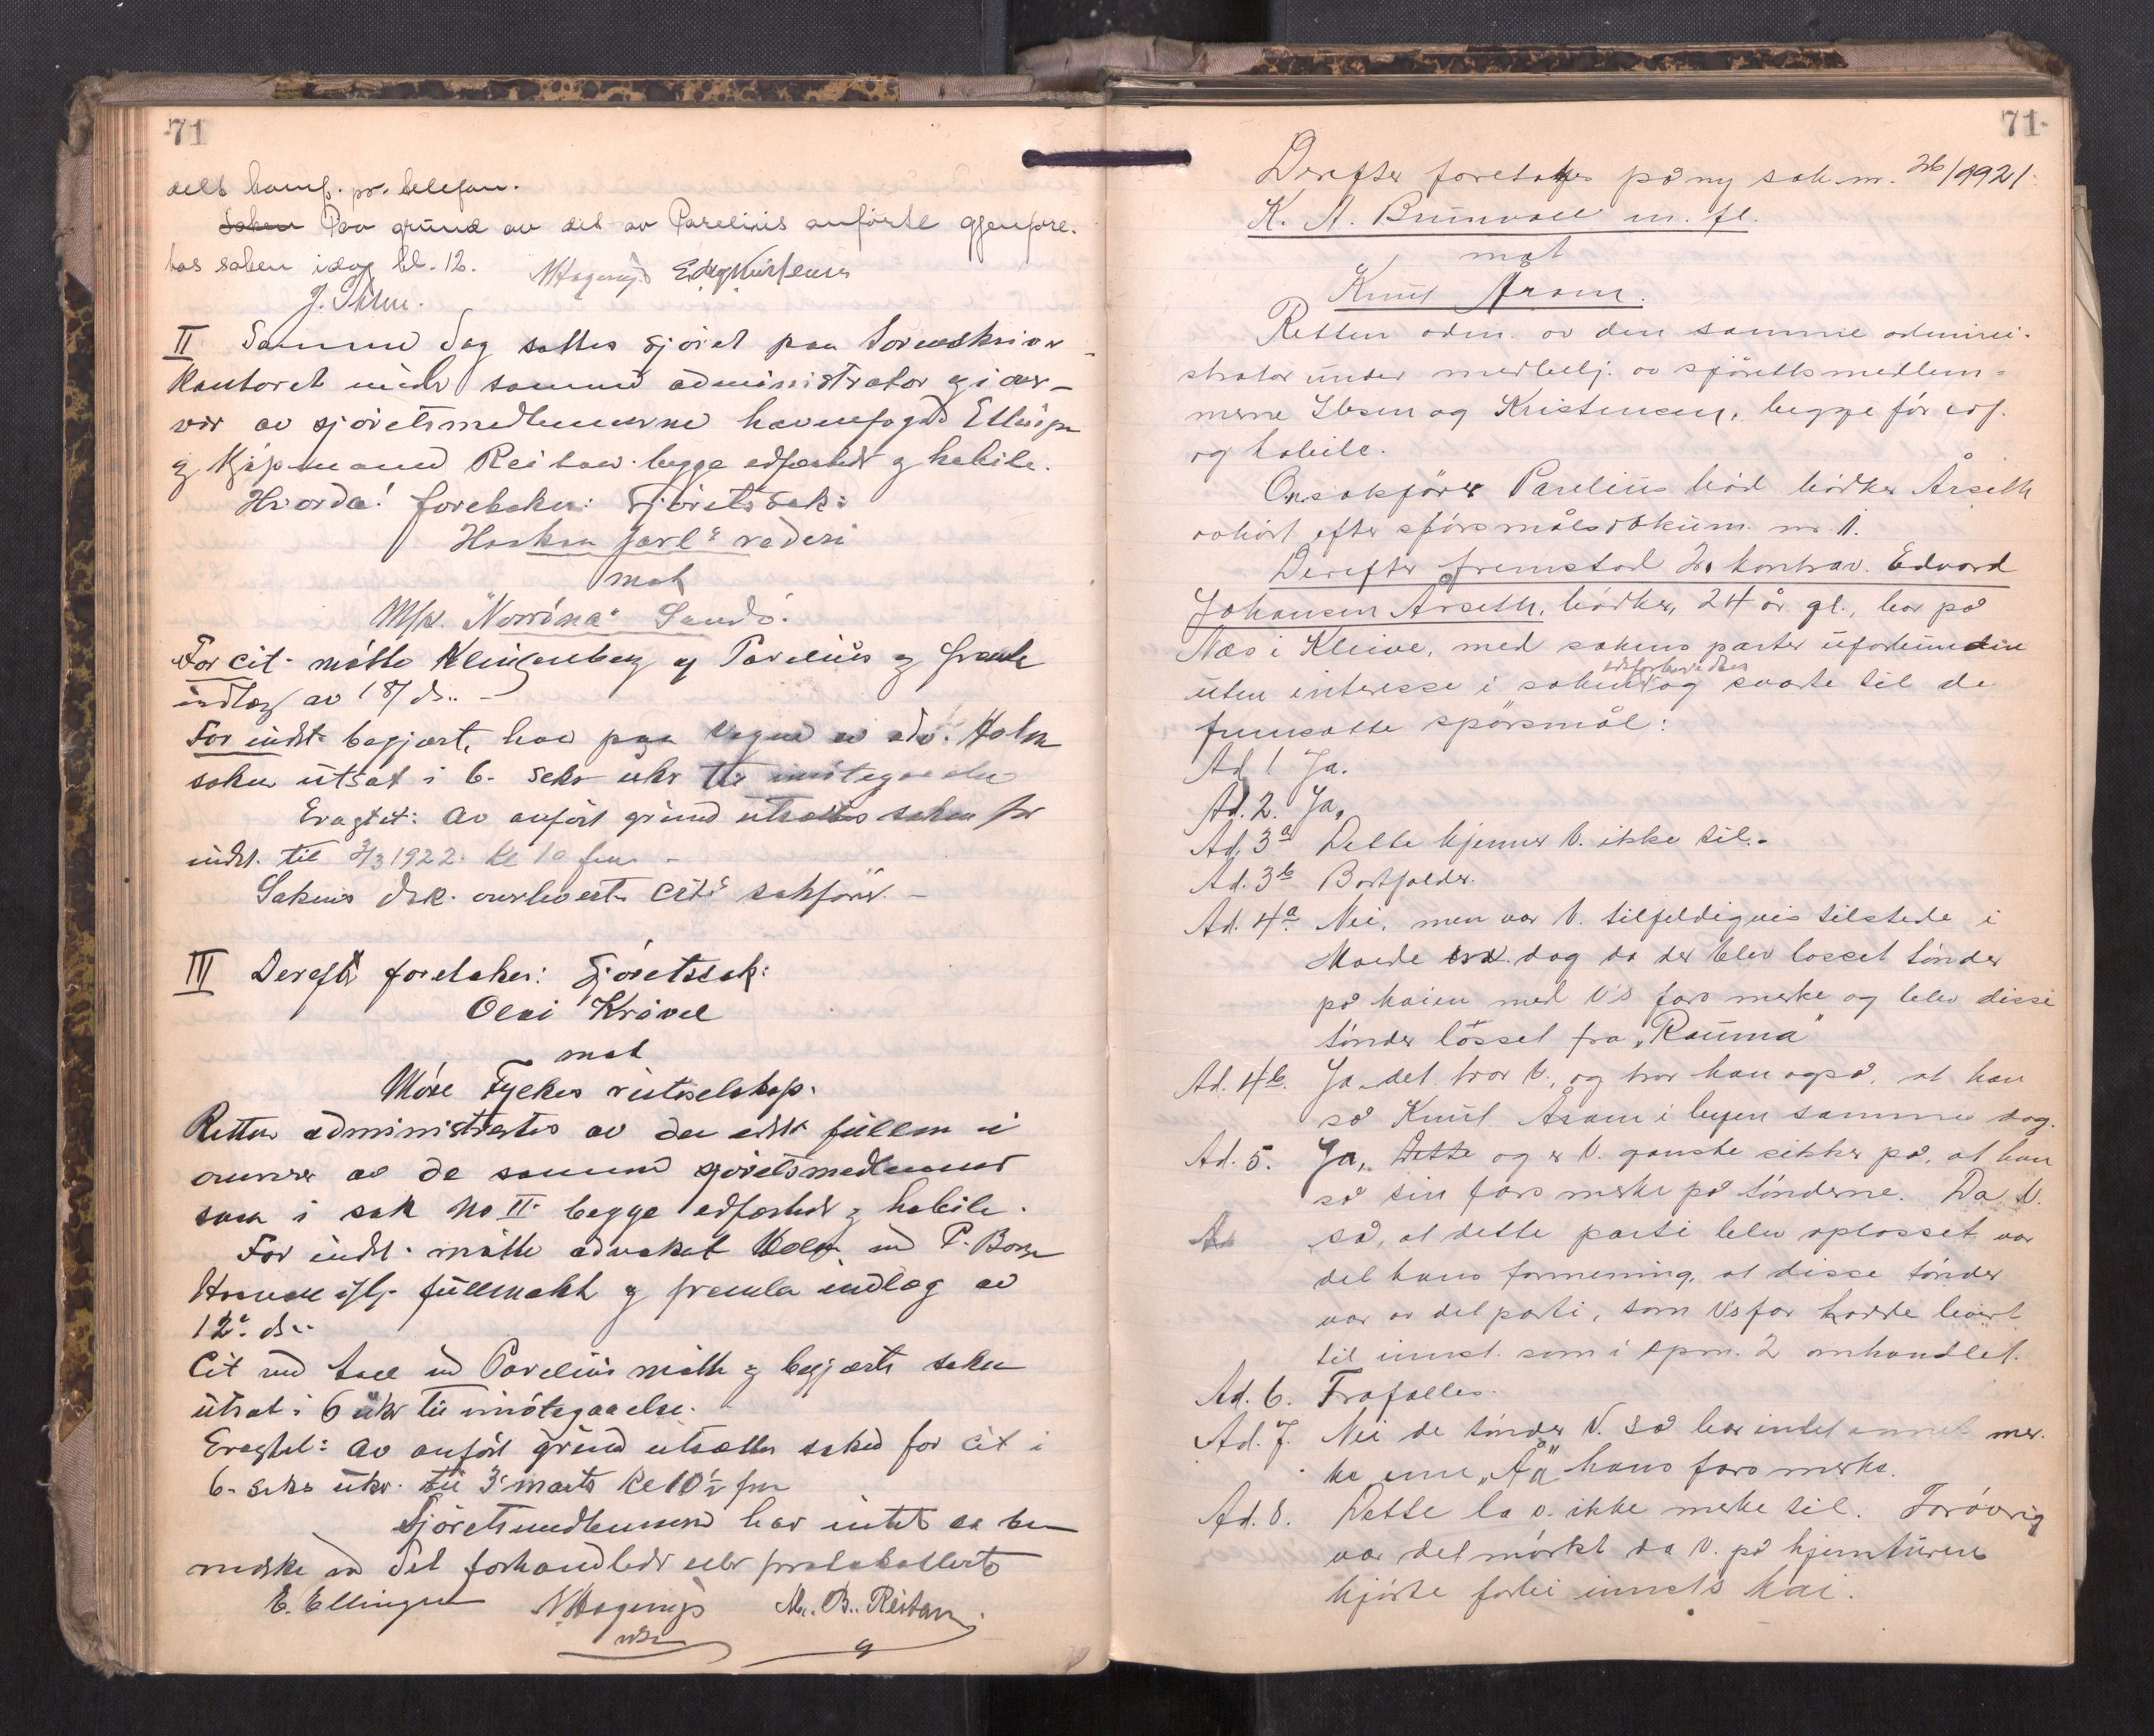 71
delt hamf. pr. telefon.
Saken Paa grund av det av Parelius anførte gjenopre-
tas saken idag kl. 12.
II Samme dag sattes sjøret paa Sorenskriver
kontoret under samme administrator og i over-
vær av sjøretsmedlemmerne havnefogd Ellingsen
og Kjøpmand Reitan begge edfæstede og habile.
Hvorda! foretokes: Sjøretssak:
Haakon Jarl's rederi
mot
M/k. "Norröna" Sandö.
For cit. møtte Klingenberg og Parelius og fremla
indlæg av 18/ ds. -
For indst. begjært, han paa vegne av adv. Holm
saken utsat i 6- seks uker til imøtegaaelse
Eragtet: Av anført grund utsættes saken for
indst. til 3/3 1922. kl 10 fm -
Sakens dok. overlevert cits sakfører. -
III Derefter foretokes: Sjøretssak:
Olai Krövel
mot
Möre Fylkes ruteselskap.
Retten administrertes av den edsv. fuldm. i
overvær av de samme sjøretsmedlemmer
som i sak No II. begge edfæstede og habile.
For indst. møtte advokat Holm ved P. Bom
iflg. fullmakt og fremla indlæg av
12. ds.
Cit ved ved Parelius møtte og begjærte saken
utsat i 6 uker til imøtegaaelse.
Eragtet: Av anført grund utsættes saken for cit i
6- seks uker. til 3 marts kl 10 1/2 fm
Sjøretsmedlemmerne har intet at be
merke ved det forhandlede eller protokollerte
E. Ellingsen M. B. Reitan
71
Derefter foretokes på ny sak nr. 26/1921.
K. A. Brunvoll m. fl.
mot
Knut Årom.
Retten adm. av den samme admini-
strator under medbetj. av sjörettsmedlem-
merne Ibsen og Kristensen, begge för edf.
og habile.
Oversakförer Parelius bød bödker Årseth
avhört efter spörsmålsdokum. nr. 1.
Derefter fremstod 2. kontrav. Edvard
Johansen Årseth, bödker, 24 år gl., bor på
Næs i Kleive, med sakens parter uforbunden
uten interesse i saken edsforberedtes og svarte til de
fremsatte spörsmål:
Ad 1 Ja.
Ad. 2. Ja.
Ad. 3a Dette kjenner V. ikke til.-
Ad. 3b Bortfalder.
Ad. 4a. Nei, men var V. tilfeldigvis tilstede i
Molde dag da der blev losset tönder
på kaien med V's fars merke og blev disse
tönder lösset fra „Rauma"
Ad. 4b. Ja det tror V., og tror han også, at han
så Knut Årom i byen samme dag.
Ad. 5. Ja, Dette og er V. ganske sikker på, at han
så sin fars merke på tönderne. Da V.
så, at dette parti blev oplosset var
det hans formening, at disse tönder
var av det parti, som V's far hadde levert
til innst. som i spm. 2 omhandlet.
Ad. 6. Frafalles.
Ad. 7. Nei de tönder V. så bar intet annet mer-
ke enn „ÅÅ" hans fars merke.
Ad. 8. Dette la v. ikke merke til. Forövrig
var det mörkt da V. på hjemturen
kjörte forbi innsts kai.